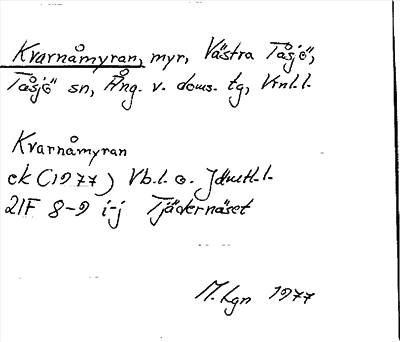 Kvarnåmyran, myr, Västra Tåsjö,
Tåsjö sn, Ång. v. doms. tg, Vrnl.l.
Kvarnåmyran
ek (1977) Vb.l. o. Jämtl.l.
21F 8-9 i-j Tjädernäset
M. Lgn 1977